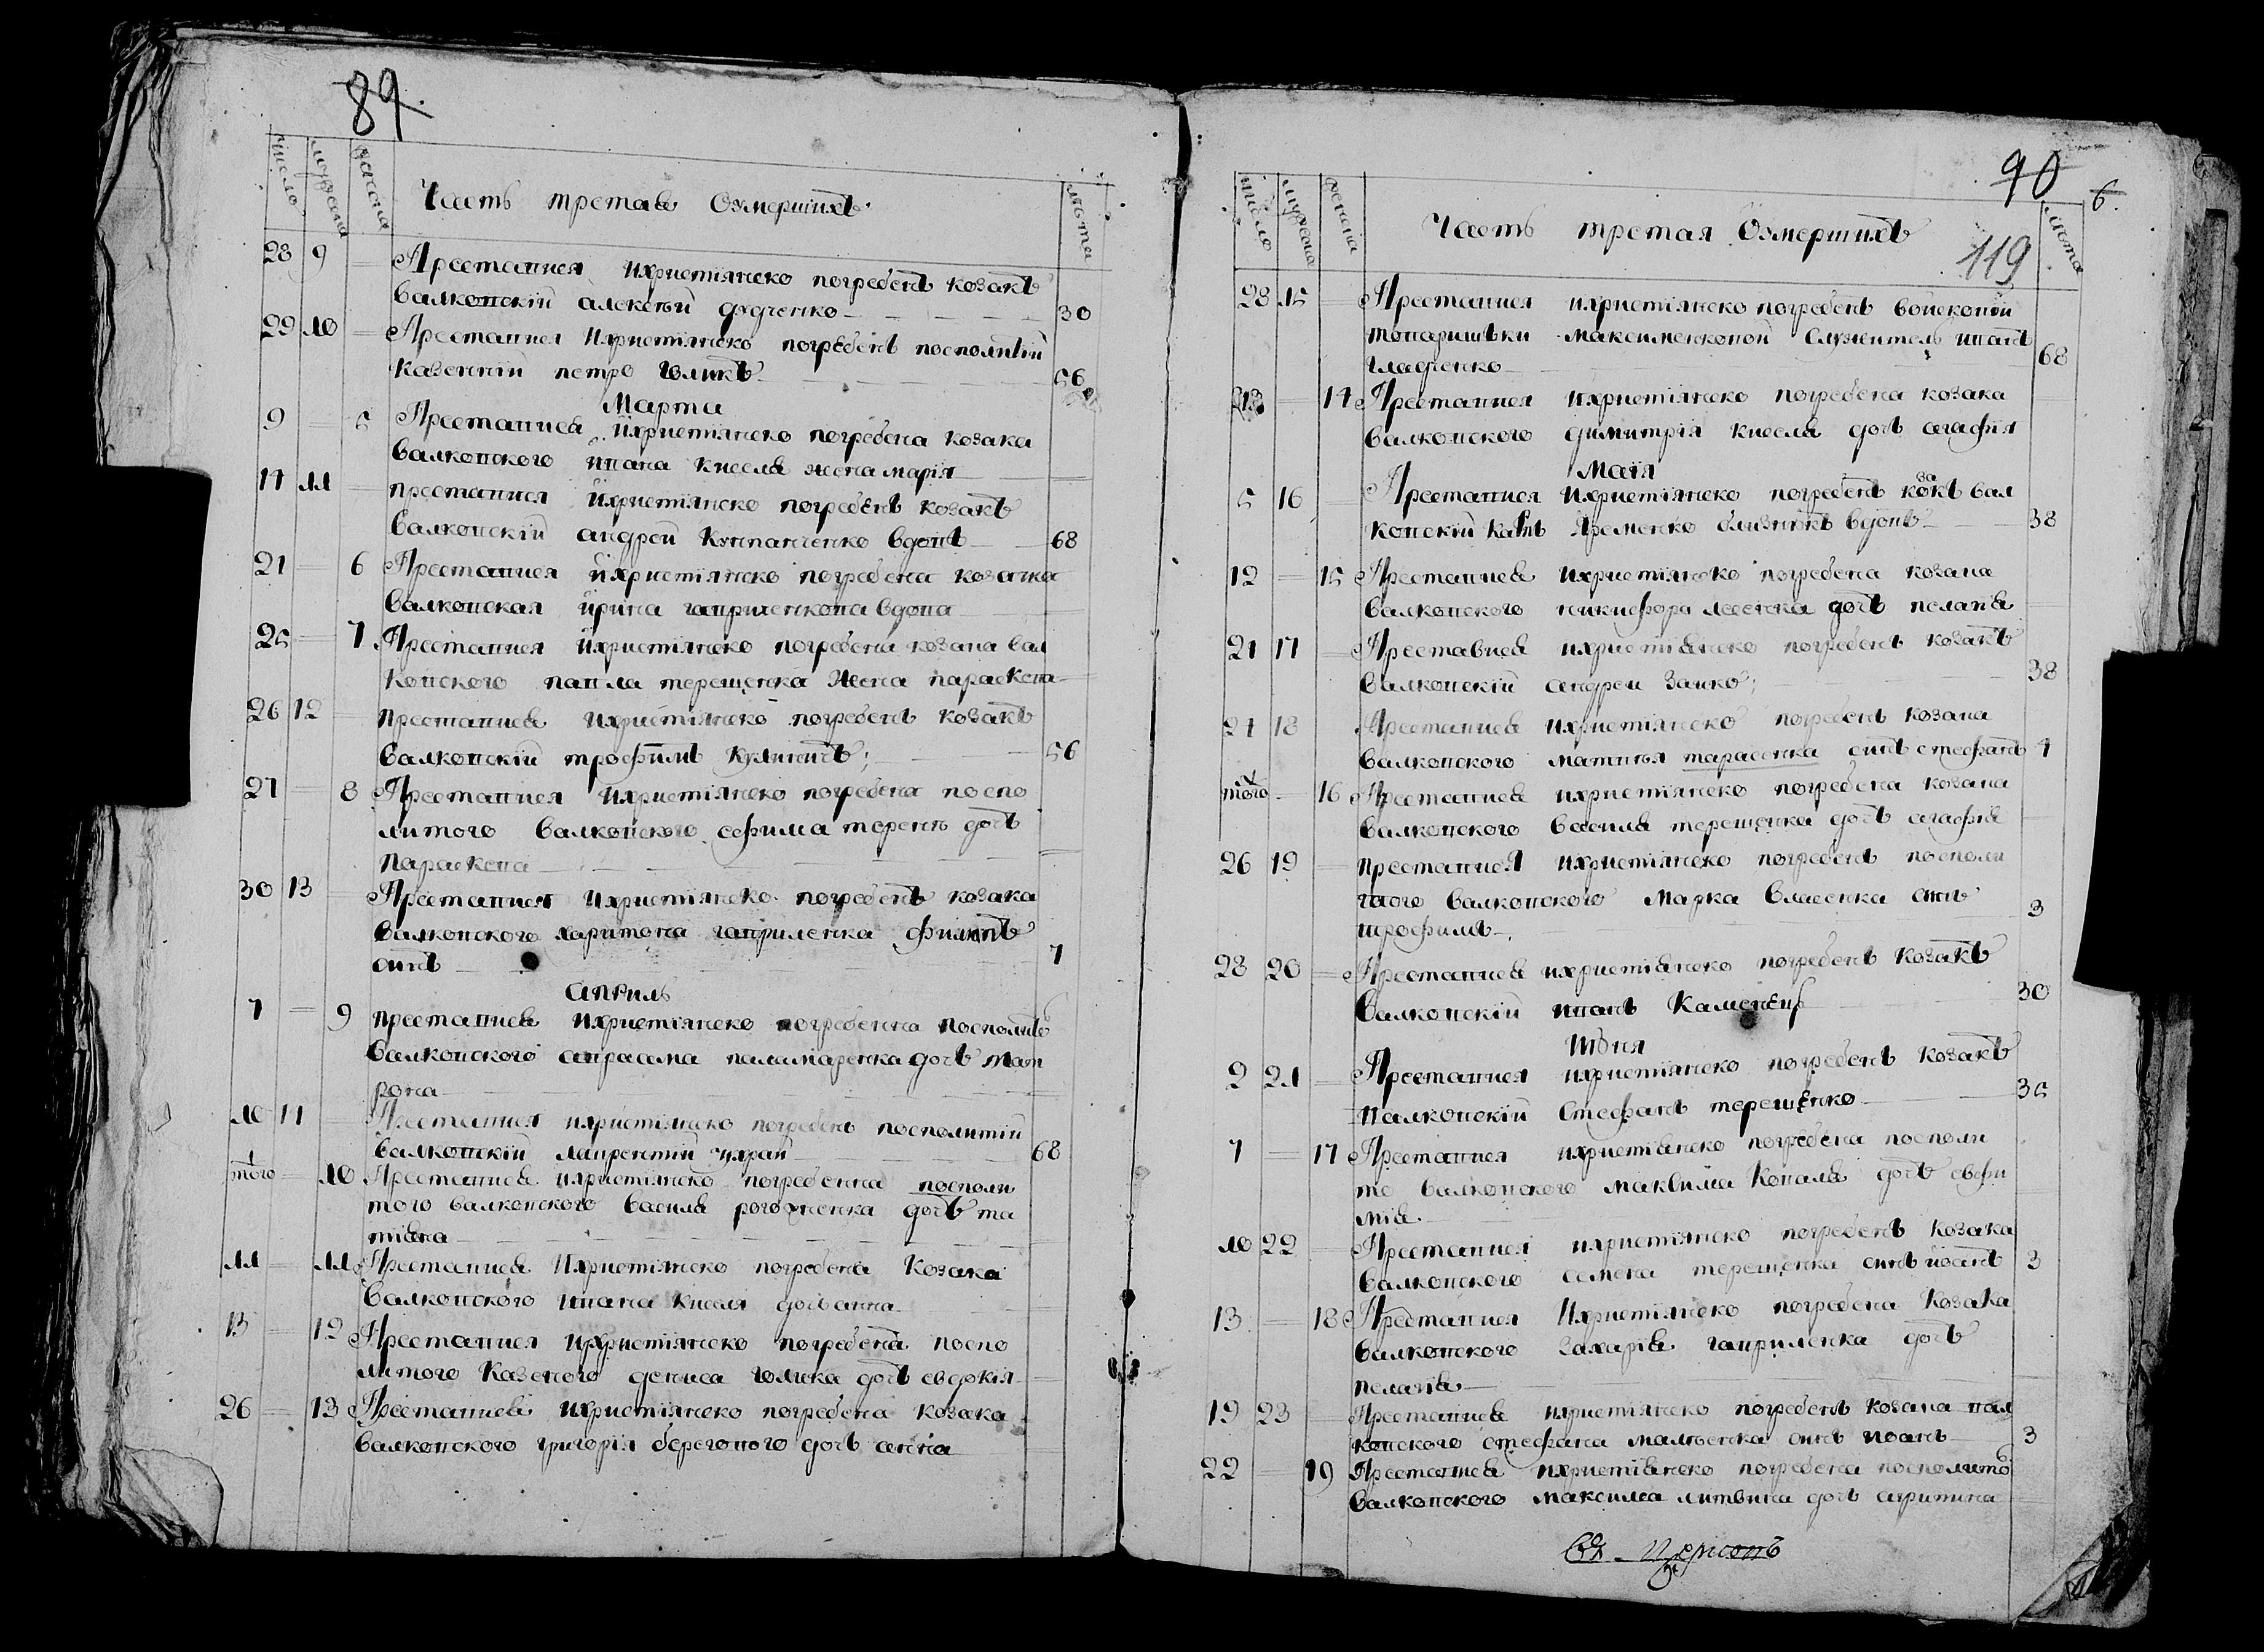 89.
число мужеска женска Часть третая Оумершихъ лѣта
28 9 Преставися ихристіянско погребенъ козакъ
валковскій алексѣй дядченко 30
29 10 Преставися Ихристіянско погребенъ посполитій
казенній петро голикъ 56
Марта
9 5 Преставися ихристіянско погребена козака
валковского ивана киселя жена марія
14 11 преставися ихристіянско погребенъ козакъ
валковскій андрей вдовъ 68
21 6 Преставися ихристіянско погребена козачка
валковская ирина вдова
25 7 Преставися ихристіянско погребена козака вал
ковского павла терещенка жена параскева
26 12 преставися ихристіянско погребенъ козакъ
валковскій трофимъ Кулиничъ; 56
27 8 Преставися ихристіянско погребена поспо
литого валковского ефима дочъ
параскева
30 13 Преставися ихристіянско погребенъ козака
валковского харитона гавриленка филипъ
синъ 1
априль
7 9 преставися ихристіянско погребенна посполито
валковского паламаренка дочъ мат
рона
10 14 Преставися ихристіянско погребенъ посполитій
валковскій лаврентій чухрай 68
того 10 Преставися ихристіянско погребенна посполи
того валковского василя дочъ та
тіяна
11 11 Преставися Ихристіянско погребена Козака
валковского ивана киселя дочъ анна
13 12 Преставися ихристіянско погребена поспо
литого Казеного дениса голика дочъ евдокія
26 13 Преставися ихристіянско погребена козака
валковского григорія берегового дочъ анна
90 6.
119
число мужеска женска Часть третая Оумершихъ лѣта
28 15 Преставися ихристіянско погребенъ войсковой
товаришѣки максименковой служитель иванъ
гладченко 68
14 Преставися ихристіянско погребена козака
валковского димитрія киселя дочъ агафія
Маія
5 16 Преставися ихристіянско погребенъ козакъ вал
ковскій Яременко вдовъ 38
12 15 Преставися ихристіянско погребена козака
валковского никифора дочъ пелагія
21 17 Преставися ихристіянско погребенъ козакъ
валковскій андреи Заико; 38
24 18 Преставися ихристіянско погребенъ козака
валковского матвѣя тарасенка синъ стефанъ 1
того 16 Преставися ихристіянско погребена козака
валковского василя терещенка дочъ агафія
26 19 преставися ихристіянско погребенъ посполи
того валковского марка власенка синъ
трофимъ 3
28 20 Преставися ихристіянско погребенъ козакъ
валковскій иванъ Каменецъ 30
Июня
2 21 Преставися ихристіянско погребенъ козакъ
валковскій Стефанъ терещенко 35
7 17 Преставися ихристіянско погребена посполи
то валковского максима Коваля дочъ евфи
мія.
10 22 Преставися ихристіянско погребенъ козака
валковского семена терещенка синъ иоанъ 3
13 18 Преставися Ихристіянско погребена Козака
валковского захарія гавриленка дочъ
пелагія
19 23 Преставися ихристіянско погребенъ козака вал
ковского стефана синъ иоанъ 3
22 19 Преставися ихристіянско погребена посполито
валковского максима литвина дочъ